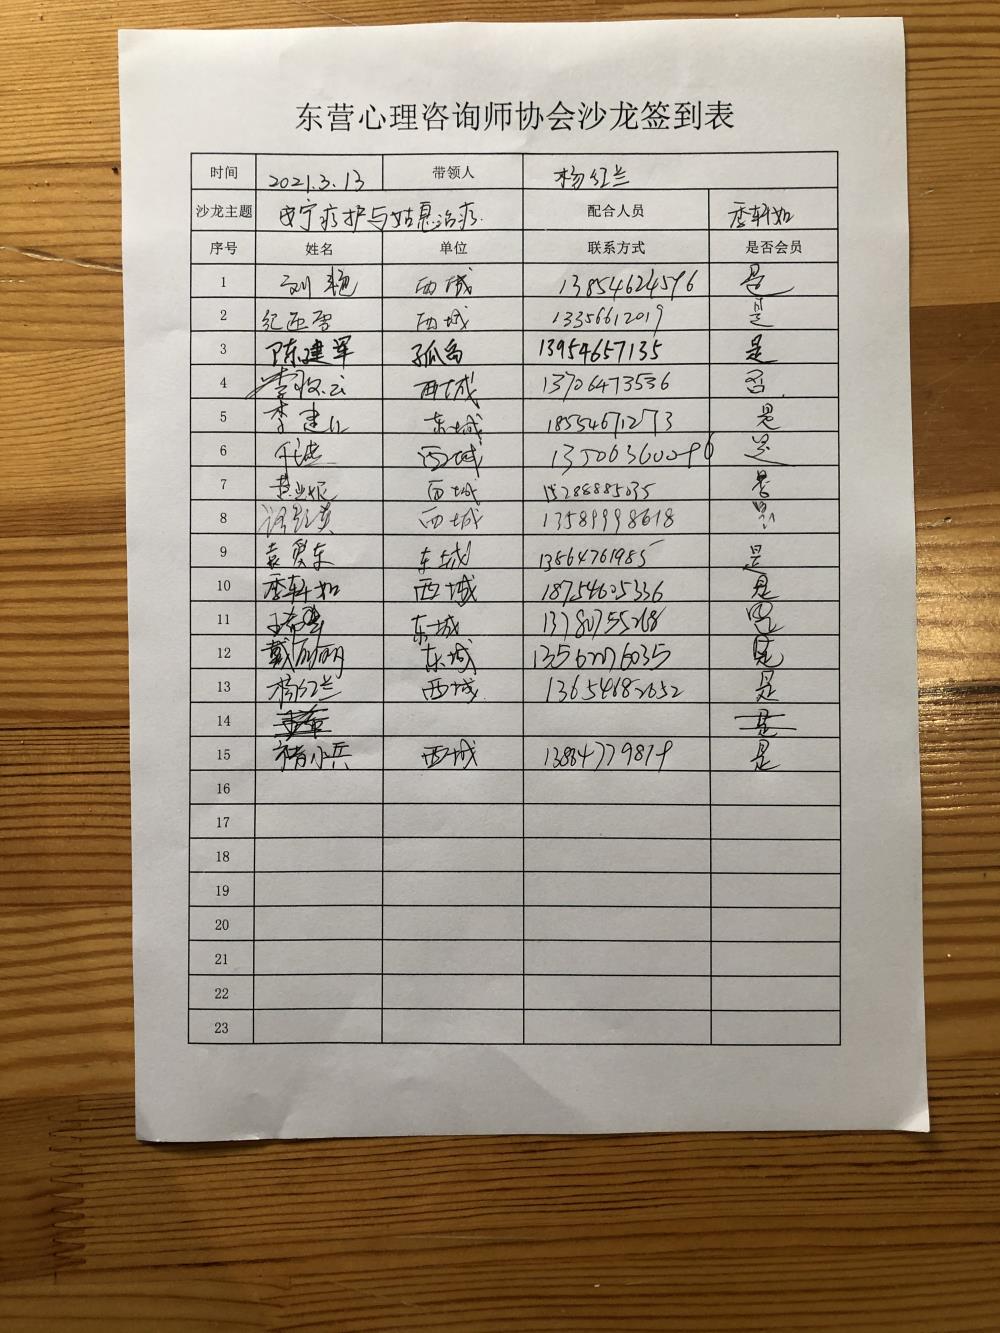 东营心理咨询师协会沙龙签到表
时间 2021.3.13 带领人 杨红兰
沙龙主题 安宁疗护与姑息治疗 配合人员 季轩如
序号 姓名 单位 联系方式 是否会员
1 刘艳 西城 13854624596 是
2 西城 13356612019 是
3 陈建军 孤岛 13954657135 是
4 李 云 西城 13706473536 否
5 李建 东城 18554671273 是
6 西城 是
7 西城 15288885035 是
8 西城 13589998618 是
9 袁爱东 东城 13864761985 是
10 季轩如 西城 18754605336 是
11 东城 13780755268 是
12 戴丽丽 东城 是
13 杨红兰 西城 13654682652 是
14 是
15 小兵 西城 是
16
17
18
19
20
21
22
23